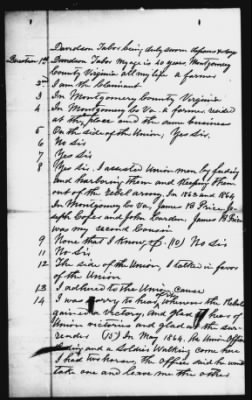 1
Davidson Tabor being duly sworn deposes & says
Question 1st Davidson Tabor My age is 40 years Montgomery
County Virginia all my life a farmer
2nd I am the Claimant
3 In Montgomery County Virginia
4 In Montgomery Co Va. a farmer resided
at the place and the own business
5 On the side of the Union; Yes Sir
6 No Sir
7 Yes Sir
8 Yes Sir. I assisted Union men by feeding
and harboring them and keeping them
out of the Rebel army. In 1863 and 1864
In Montgomery Co Va, James B Price Jo-
seph Coles and John Carden. James B Price
was my second Cousin
9 None that I know of. (10) No Sir
11 No Sir
12 The side of the Union, I talked in favor
of the Union
13 I adhered to the Union cause
14 I was sorry to hear of whenever the Rebels
gained a victory, and glad to hear of
Union victories and glad at the sur-
render (15) In May 1864. An Union Officer
and a Soldier Walking came here
I had two horses, the officer said he would
take one and leave me the other